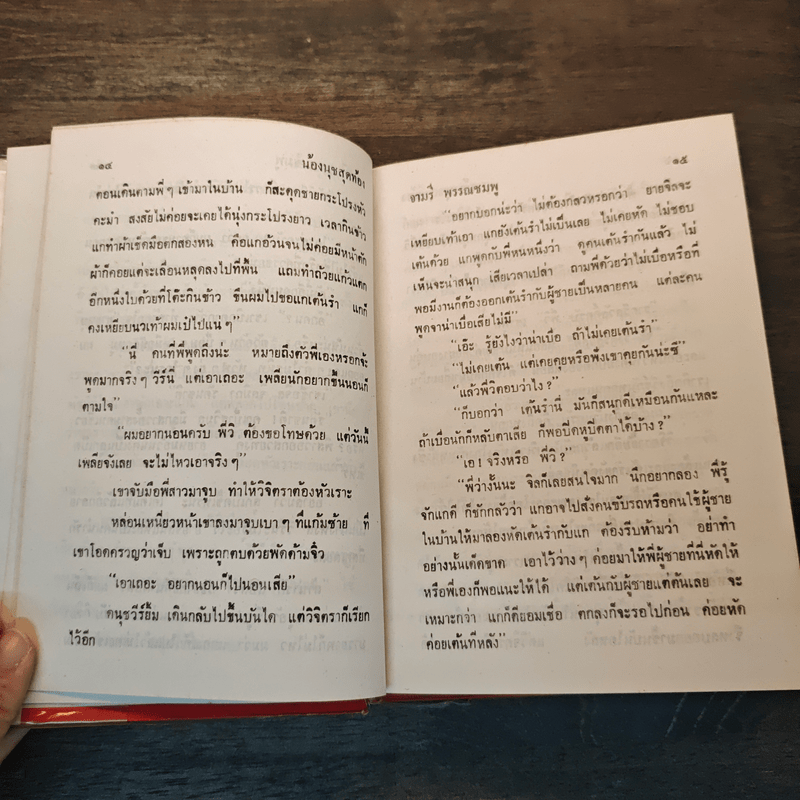 ๑๔
น้องนุชสุดท้อง
ตอนเดินตามพี่ๆ เข้ามาในบ้าน ก็สะดุดชายกระโปรงหัว
คะมำ สงสัยไม่ค่อยจะเคยได้นุ่งกระโปรงยาว เวลากินข้าว
แกทำผ้าเช็ดมือตกสองหน คือแกอ้วนจนไม่ค่อยมีหน้าตัก
ผ้าก็คอยแต่จะเลื่อนหลุดลงไปที่พื้น แถมทำถ้วยแก้วแตก
อีกหนึ่งใบด้วยที่โต๊ะกินข้าว ขืนผมไปขอแกเต้นรำ แกก็
คงเหยียบนวเท้าผมเป๋ไปแน่ๆ”
“นี่ คนที่พี่พูดถึงน่ะ หมายถึงตัวพี่เองหรอกจ้ะ
พูดมากจริงๆ วีร์นี่ แต่เอาเถอะ เพลียนักอยากขึ้นนอนก็
ตามใจ”
“ผมอยากนอนครับ พี่วิ ต้องขอโทษด้วย แต่วันนี้
เพลียจังเลย จะไม่ไหวเอาจริงๆ”
เขาจับมือพี่สาวมาจูบ ทำให้วิจิตราต้องหัวเราะ
หล่อนเหนี่ยวหน้าเขาลงมาจูบเบาๆ ที่แก้มซ้าย ที่
เขาโอดครวญว่าเจ็บ เพราะถูกตบด้วยพัดด้ามจิ๋ว
“เอาเถอะ อยากนอนก็ไปนอนเสีย”
ดนุชวีร์ยิ้ม เดินกลับไปขึ้นบันได แต่วิจิตราก็เรียก
ไว้อีก
๑๕
จามรี พรรณชมพู
“อยากบอกน่ะว่า ไม่ต้องกลัวหรอกว่า ยายจิลจะ
เหยียบเท้าเอา แกยังเต้นรำไม่เป็นเลย ไม่เคยหัด ไม่ชอบ
เต้นด้วย แกพูดกับพี่หนหนึ่งว่า ดูคนเต้นรำกันแล้ว ไม่
เห็นจะน่าสนุก เสียเวลาเปล่า ถามพี่ด้วยว่าไม่เบื่อหรือที่
พอมีงานก็ต้องออกเต้นรำกับผู้ชายเป็นหลายคน แต่ละคน
พูดจาน่าเบื่อเสียไม่มี”
“เอ๊ะ รู้ยังไงว่าน่าเบื่อ ถ้าไม่เคยเต้นรำ”
“ไม่เคยเต้น แต่เคยคุยหรือฟังเขาคุยกันน่ะซี”
“แล้วพี่วิตอบว่าไง?”
“ก็บอกว่า เต้นรำนี่ มันก็สนุกดีเหมือนกันแหละ
ถ้าเบื่อนักก็หลับตาเสีย ก็พอปิดหูปิดตาได้บ้าง?”
“เอ! จริงหรือ พี่วิ?”
“พี่ว่างั้นนะ จิลก็เลยสนใจมาก นึกอยากลอง พี่รู้
จักแกดี ก็ชักกลัวว่า แกอาจไปสั่งคนขับรถหรือคนใช้ผู้ชาย
ในบ้านให้มาลองหัดเต้นรำกับแก ต้องรีบห้ามว่า อย่าทำ
อย่างนั้นเด็ดขาด เอาไว้ว่างๆ ค่อยมาให้พี่ผู้ชายที่นี่หัดให้
หรือพี่เองก็พอแนะให้ได้ แต่เต้นกับผู้ชายแต่ต้นเลย จะ
เหมาะกว่า แกก็ดียอมเชื่อ ตกลงก็จะรอไปก่อน ค่อยหัด
ค่อยเต้นทีหลัง”